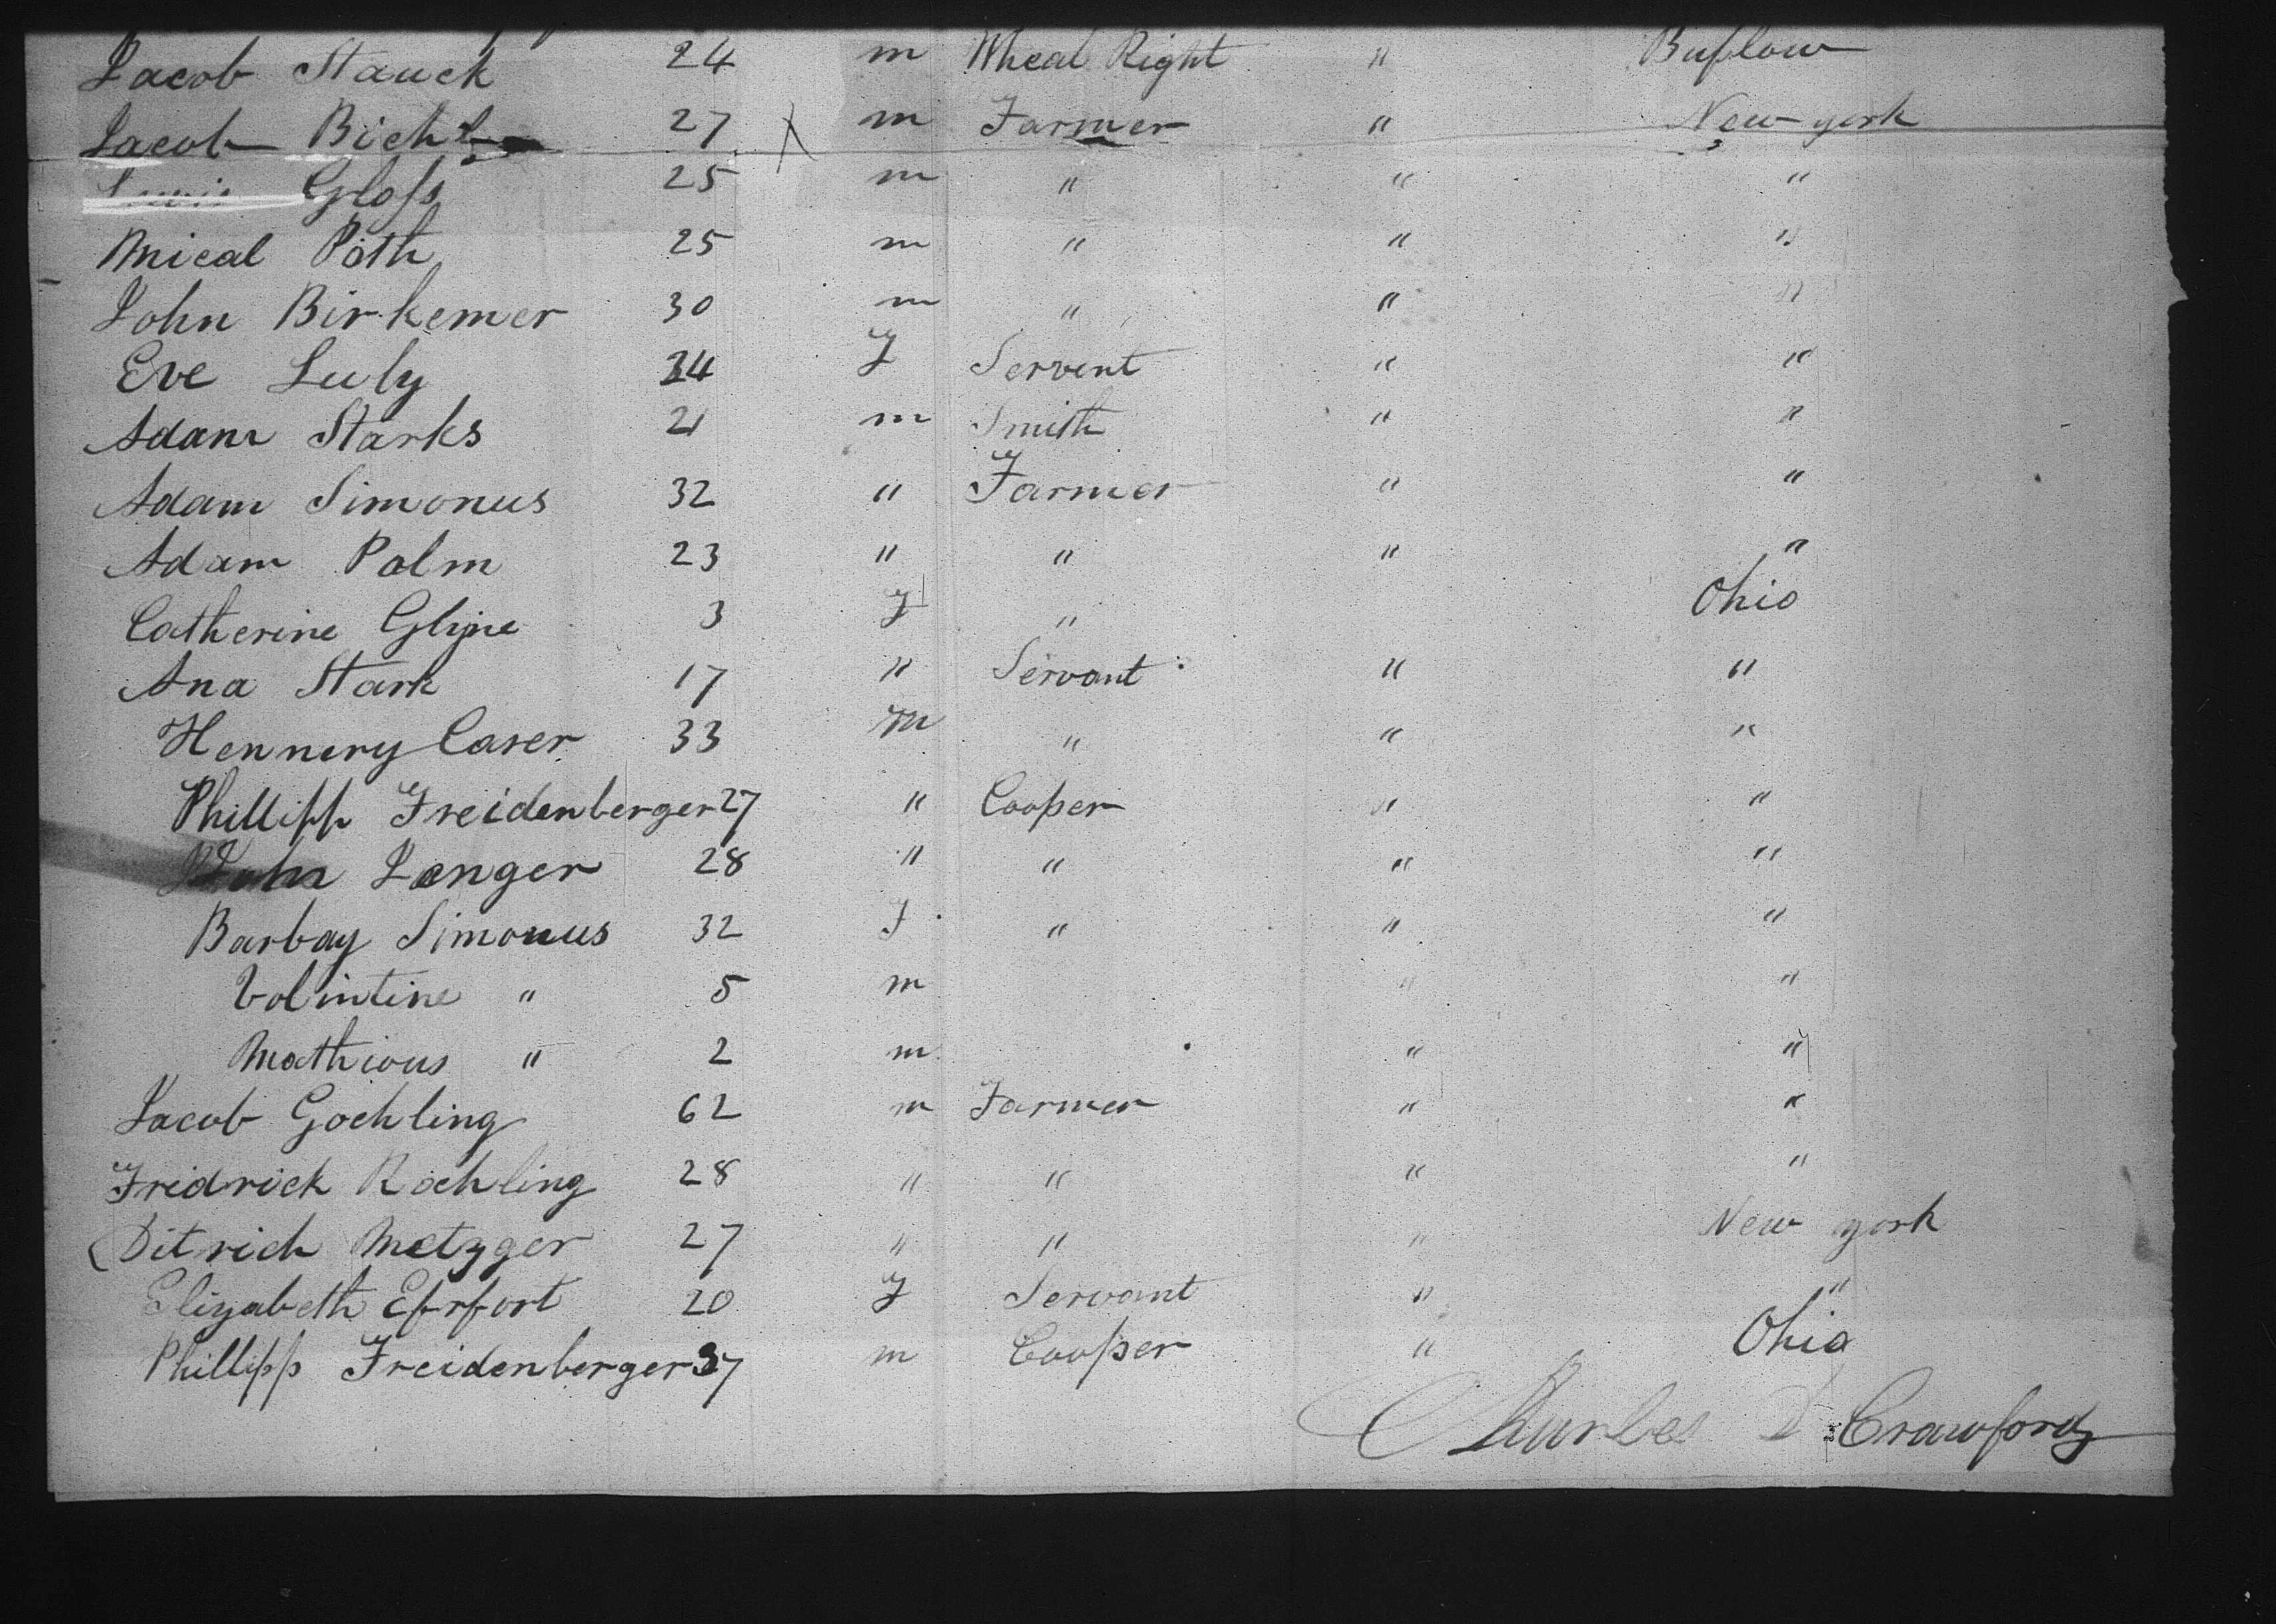 Jacob Stauck 24 m Wheal Right " Buflow
Jacob Bicht 27 m Farmer " New york
Lewis Gloſs 25 m " " "
Mical Poth 25 m " " "
John Birkemer 30 m " " "
Eve Luly 24 F Servent " "
Adam Starks 21 m Smith " "
Adam Simonus 32 " Farmer " "
Adam Palm 23 " " " "
Catherine 3 F " Ohio
Ana Stark 17 " Servant " "
Hennery Caser 33 m " " "
Phillipp Freidenberger 27 " Cooper " "
John Langer 28 " " " "
Barbay Simonus 32 F " " "
Volintine " 5 m " "
Mathious " 2 m " "
Jacob Gochling 62 m Farmer " "
Fridrick Rochling 28 " " " "
Ditrich Metzger 27 " " " New york
Elizabeth 20 F Servant " "
Phillipp Freidenberger 37 m Cooper " Ohio
Charles D Crawford